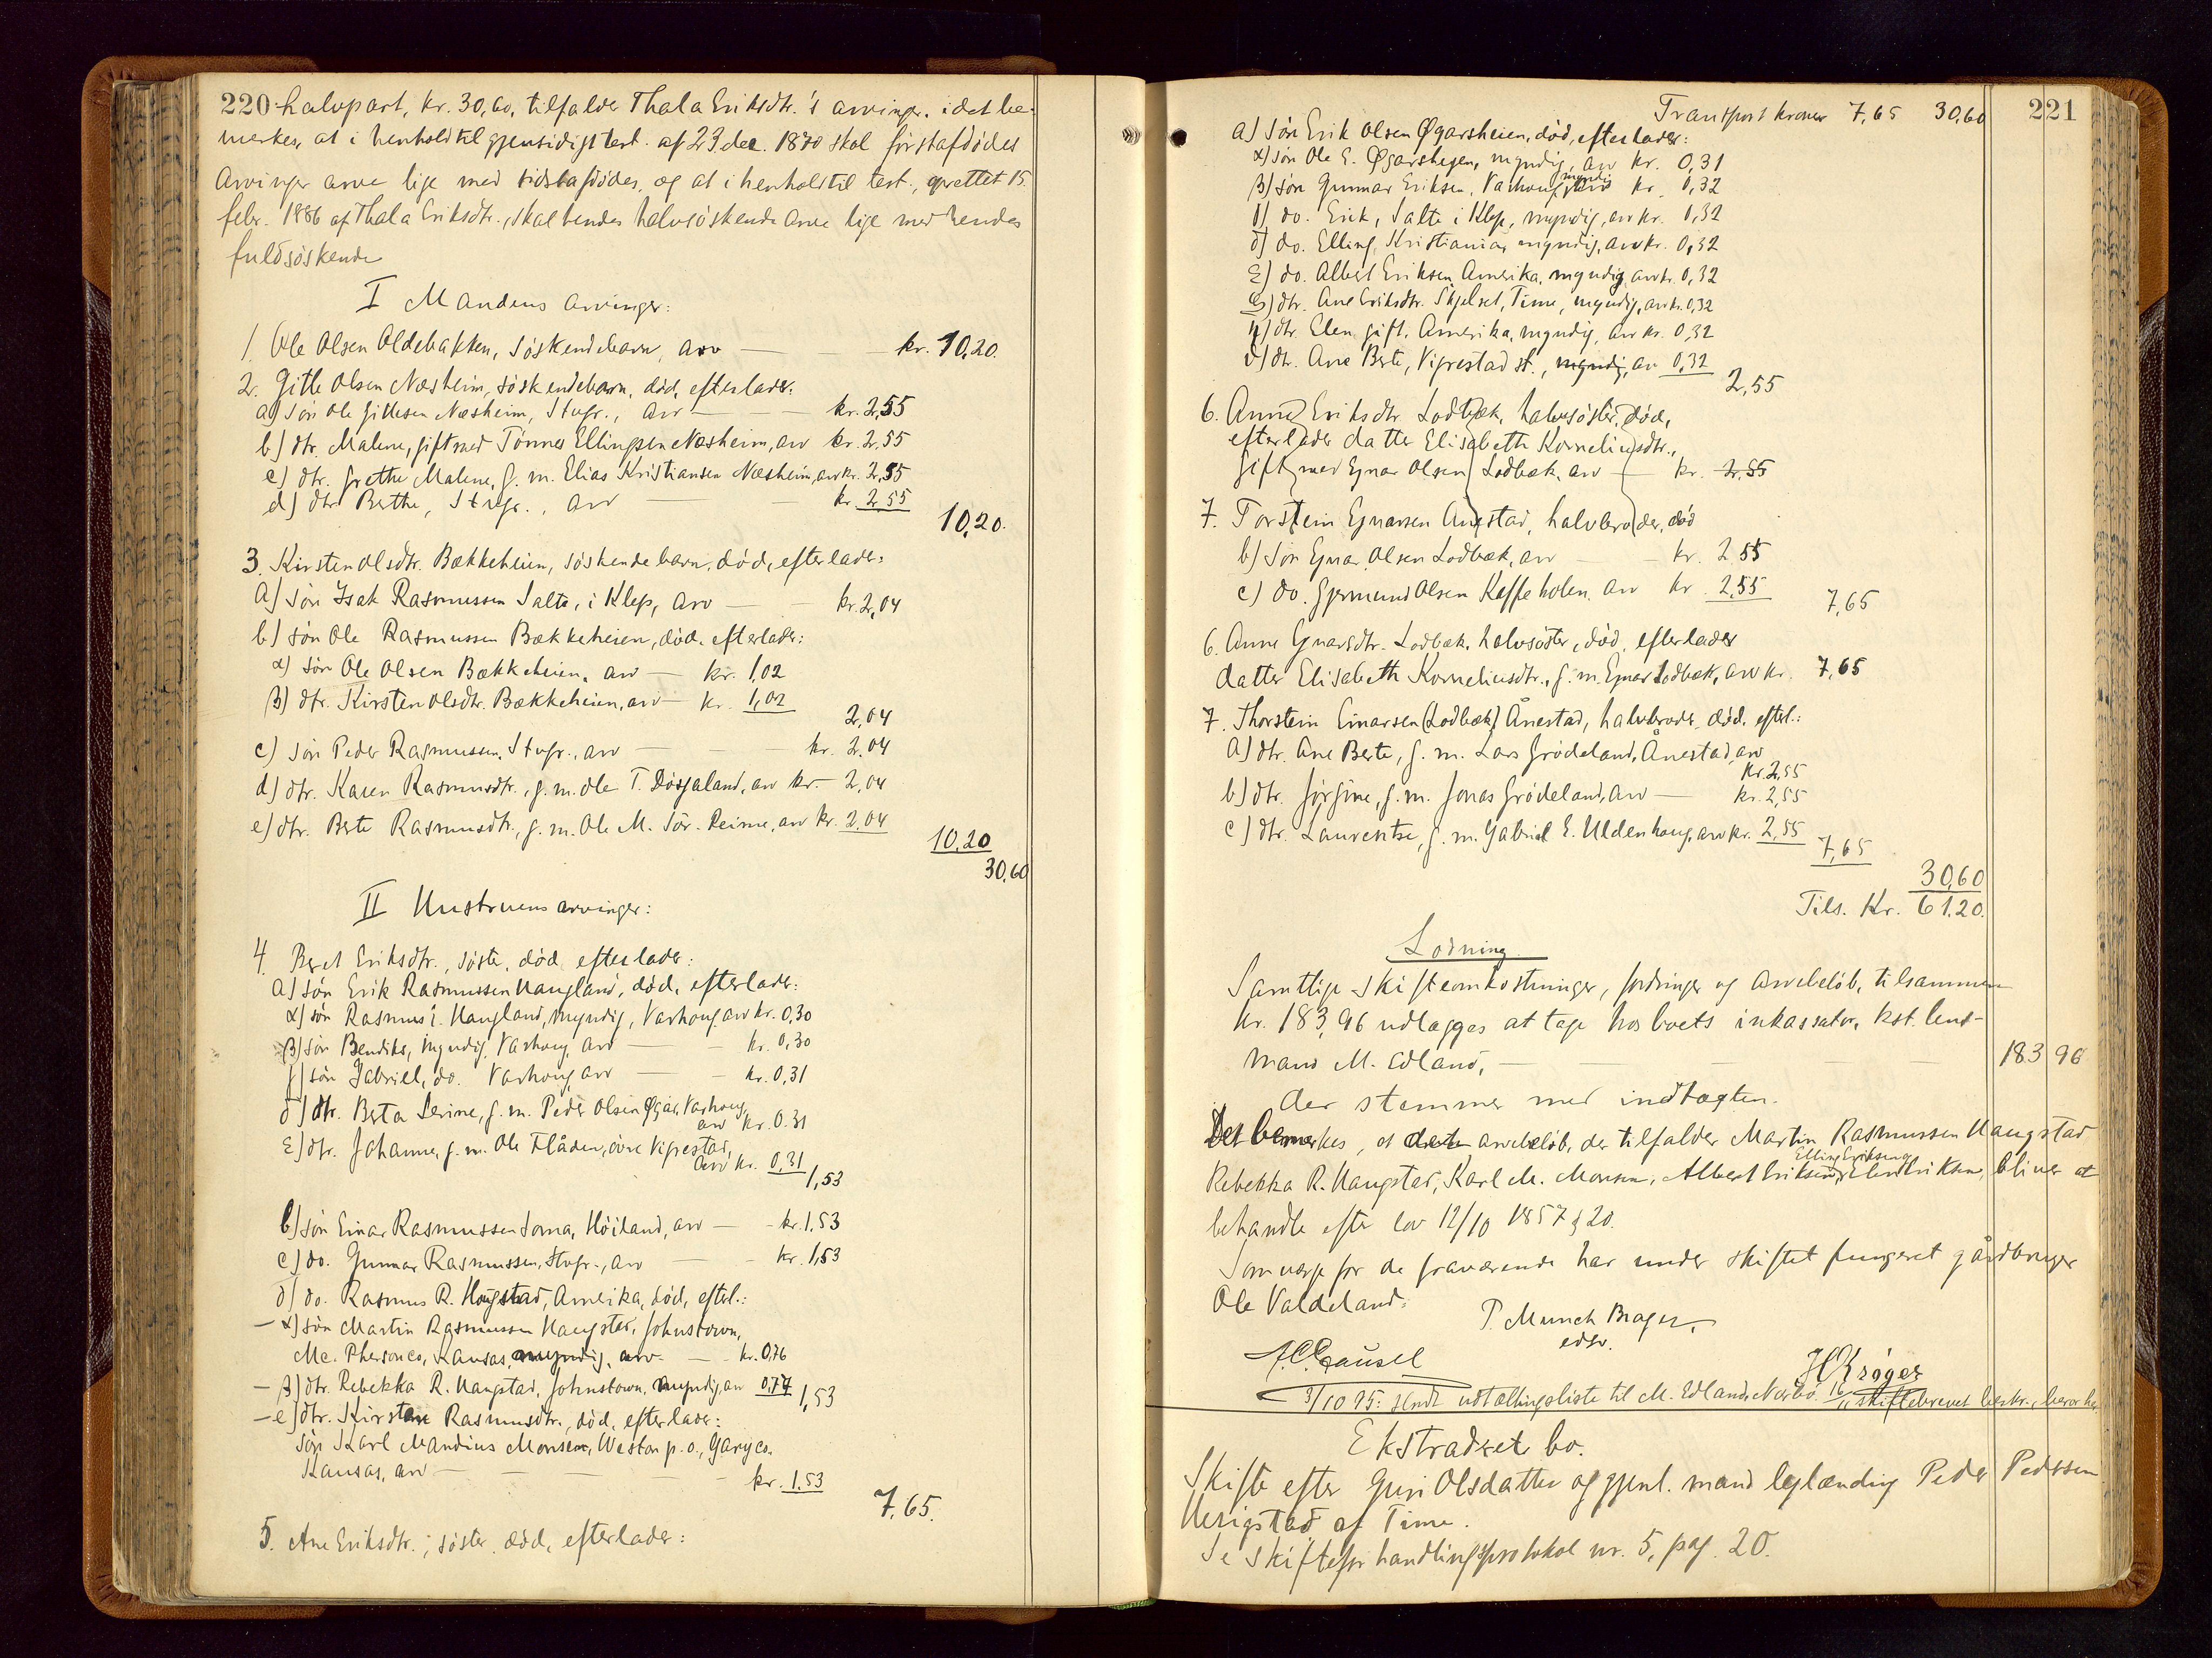 220 halvpart, kr. 30,60, tilfalder Thala Eriksdtr.'s arvinger, idet be-
merkes, at i henhold til gjensidigt test. af 23 dec. 1870 skal førstafdødes
Arvinger arve lige med sidstafdødes, og at i henhold til test., oprettet 15.
febr. 1886 af Thala Eriksdtr., skal hendes halvsøskende arve lige med hendes
fuldsøskende
I Mandens arvinger:
1. Ole Olsen Oldebakken, søskendebarn, arv — kr. 10,20.
2. Gitle Olsen Næsheim, søskendebarn, død, efterlader:
a) søn Ole Gitlesen Næsheim, Stvgr., arv — kr. 2,55
b) dtr. Malene, gift med Tønnes Ellingsen Næsheim, arv kr. 2,55
c) dtr. Grethe Malene, g. m. Elias Kristiansen Næsheim, arv kr. 2,55
d) dtr. Berthe, Stvgr., arv — kr. 2,55
10,20.
3. Kirsten Olsdtr. Bækkeheien, søskendebarn, død, efterlader:
a) søn Isak Rasmussen Salte, i Klep, arv — kr. 2,04
b) søn Ole Rasmussen Bækkeheien, død, efterlader:
α) søn Ole Olsen Bækkeheien, arv — kr. 1,02
β) dtr. Kirsten Olsdtr. Bækkeheien, arv — kr. 1,02
2,04
c) søn Peder Rasmussen, Stvgr., arv — kr. 2,04
d) dtr. Karen Rasmusdtr., g. m. Ole T. Dösjaland, arv kr. 2,04
e) dtr. Berte Rasmusdtr., g. m. Ole M. Sör-Reime, arv kr. 2,04
10,20
30,60
II Hustruens arvinger:
4. Beret Eriksdtr., søster, død, efterlader:
a) søn Erik Rasmussen Haugland, død, efterlader:
α) søn Rasmus i Haugland, myndig, Varhoug, arv kr. 0,30
β) søn Bendiks, myndig, Varhoug, arv — kr. 0,30
γ) søn Gabriel, do. Varhoug, arv — kr. 0,31
δ) dtr. Berta Serine, g. m. Peder Olsen Øgår, Varhoug,
arv kr. 0.31
ε) dtr. Johanne, g. m. Ole Flåden, övre Vigrestad,
arv kr. 0,31
1,53
b) søn Einar Rasmussen Soma, Höiland, arv — kr. 1,53
c) do. Gunnar Rasmussen, Stvgr., arv — kr. 1,53
d) do. Rasmus R. Hougstad, Amerika, død, efterl.:
— α) søn Martin Rasmussen Haugstad, Johnstown,
Mc. Pherson co, Kansas, myndig, arv — kr. 0,76
— β) dtr. Rebekka R. Haugstad, Johnstown, myndig, arv 0,77
1,53
— e) dtr. Kirsten Rasmusdtr., død, efterlader:
søn Karl Mandius Monsen, Weston p. o., Gary co.
Kansas, arv — kr. 1.53
7,65.
5. Ane Eriksdtr., søster, død, efterlader:
Transport kroner 7,65 30,60 221
a) Søn Erik Olsen Øgarsheien, død, efterlader:
α) søn Ole E. Øgarsheien, myndig, arv kr. 0,31
β) søn Gunnar Eriksen, Varhoug, myndig arv kr. 0,32
γ) do. Erik, Salte i Klep, myndig, arv kr. 0,32
δ) do. Elling, Kristiania, myndig, arv kr. 0,32
ε) do. Albert Eriksen, Amerika, myndig, arv kr. 0,32
ς) dtr. Ane Eriksdtr. Skjelset, Time, myndig, arv kr. 0,32
η) dtr. Elen, gift, Amerika, myndig, arv kr. 0,32
θ) dtr. Ane Berte, Vigrestad st., myndig, arv 0,32
2,55
6. Anne Eriksdtr. Lodbæk, halvsøster, død,
efterlader datter Elisabeth Korneliusdtr.,
gift med Ejnar Olsen Lodbæk, arv — kr. 2,55
7. Torstein Ejnarsen Ånestad, halvbroder, død
b) Søn Ejnar Olsen Lodbæk, arv — kr. 2,55
c) do. Gjermund Olsen Kaffeholen, arv kr. 2,55
7,65
6. Anne Ejnarsdtr. Lodbæk, halvsøster, død, efterlader
datter Elisabeth Korneliusdtr., g. m. Ejnar Lodbæk, arv kr. 7,65
7. Thorstein Einarsen (Lodbæk) Ånestad, halvbroder, død, efterl.:
a) dtr. Ane Berte, g. m. Lars Grödeland, Ånestad, arv
kr. 2,55
b) dtr. Jörgine, g. m. Jonas Grödeland, arv — kr. 2,55
c) dtr. Laurentse, g. m. Gabriel E. Uldenhoug, arv kr. 2,55
7,65
30,60
Tils. kr. 61.20.
Lodning.
Samtlige skifteomkostninger, fordringer og arvebeløb, tilsammen
kr. 183,96 udlægges at tage hos boets inkassator, kst. lens-
mand M. Edland, — 183 96
der stemmer med indtægten.
Det bemerkes, at det arvebeløb, der tilfalder Martin Rasmussen Haugstad
Elling Eriksen og
Rebekka R. Haugstad, Karl M. Monsen, Albert Eriksen, Elen Eriksen, bliver at
behandle efter lov 12/10 1857 § 20.
Som verge for de fraværende har under skiftet fungeret gårdbruger
Ole Valdeland.
P. Munch Brager,
edsv.
A. C. Gausel
H Krøger
3/10 95: sendt udtællingsliste til M. Edland, Nærbø. 16/11 skiftebrevet beskr., bevor her.
Ekstradret bo.
Skifte efter Guri Olsdatter og gjenl. mand leglænding Peder Pedersen
Herigstad af Time.
Se skifteforhandlingsprotokol nr. 5, pag. 20.